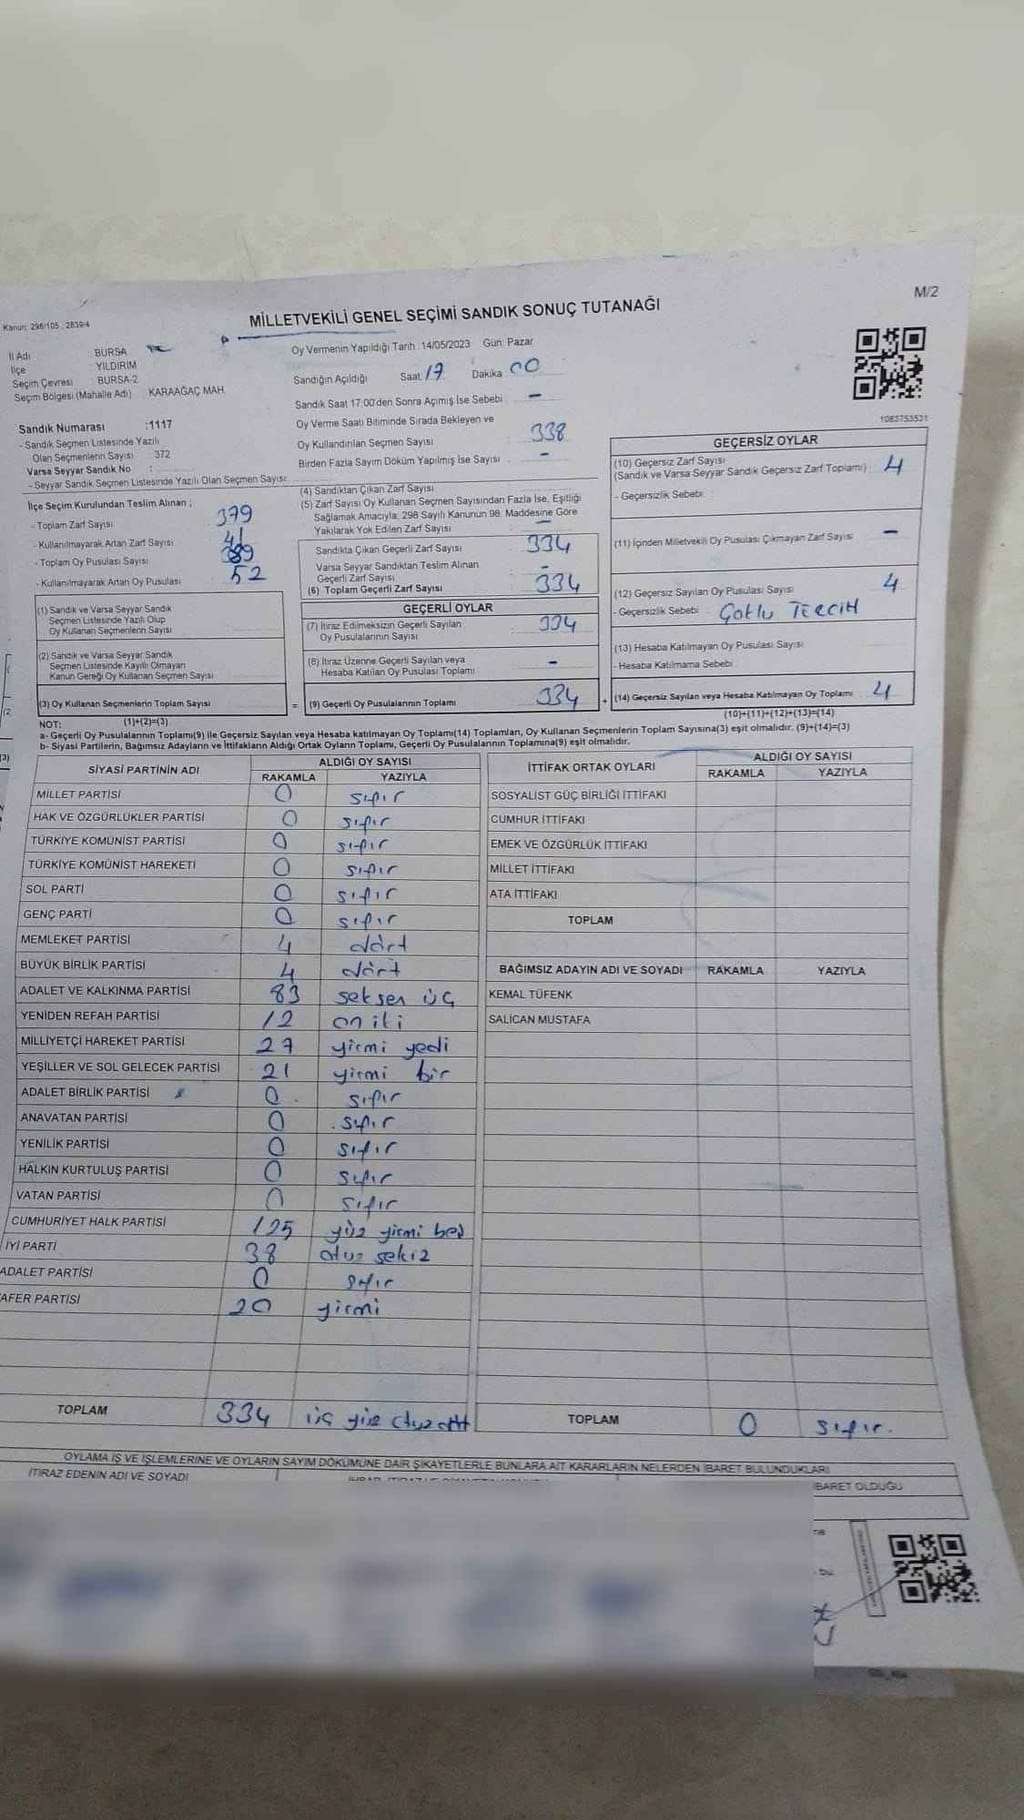 M/2
Kanun: 298/105, 2839/4
MİLLETVEKİLİ GENEL SEÇİMİ SANDIK SONUÇ TUTANAĞI
İl Adı BURSA
İlçe YILDIRIM
Seçim Çevresi BURSA-2
Seçim Bölgesi (Mahalle Adı) KARAAĞAÇ MAH.
Oy Vermenin Yapıldığı Tarih: 14/05/2023 Gün: Pazar
Sandığın Açıldığı Saat 17 Dakika 00
Sandık Saat 17:00'den Sonra Açımış İse Sebebi -
Oy Verme Saati Bitiminde Sırada Bekleyen ve
Oy Kullandırılan Seçmen Sayısı 338
Birden Fazla Sayım Döküm Yapılmış İse Sayısı -
1083753531
Sandık Numarası :1117
- Sandık Seçmen Listesinde Yazılı
Olan Seçmenlerin Sayısı 372
Varsa Seyyar Sandık No :
- Seyyar Sandık Seçmen Listesinde Yazılı Olan Seçmen Sayısı:
İlçe Seçim Kurulundan Teslim Alınan ;
- Toplam Zarf Sayısı 379
- Kullanılmayarak Artan Zarf Sayısı 41
- Toplam Oy Pusulası Sayısı 389
- Kullanılmayarak Artan Oy Pusulası 52
(1) Sandık ve Varsa Seyyar Sandık
Seçmen Listesinde Yazılı Olup
Oy Kullanan Seçmenlerin Sayısı
(2) Sandık ve Varsa Seyyar Sandık
Seçmen Listesinde Kayıtlı Olmayan
Kanun Gereği Oy Kullanan Seçmen Sayısı
(3) Oy Kullanan Seçmenlerin Toplam Sayısı =
(4) Sandıktan Çıkan Zarf Sayısı
(5) Zarf Sayısı Oy Kullanan Seçmen Sayısından Fazla İse, Eşitliği
Sağlamak Amacıyla, 298 Sayılı Kanunun 98. Maddesine Göre
Yakılarak Yok Edilen Zarf Sayısı -
Sandıkta Çıkan Geçerli Zarf Sayısı 334
Varsa Seyyar Sandıktan Teslim Alınan
Geçerli Zarf Sayısı -
(6) Toplam Geçerli Zarf Sayısı 334
GEÇERLİ OYLAR
(7) İtiraz Edilmeksizin Geçerli Sayılan
Oy Pusulalarının Sayısı 334
(8) İtiraz Üzerine Geçerli Sayılan veya
Hesaba Katılan Oy Pusulası Toplamı -
(9) Geçerli Oy Pusulalarının Toplamı 334 +
GEÇERSİZ OYLAR
(10) Geçersiz Zarf Sayısı
(Sandık ve Varsa Seyyar Sandık Geçersiz Zarf Toplamı) 4
- Geçersizlik Sebebi
(11) İçinden Milletvekili Oy Pusulası Çıkmayan Zarf Sayısı -
(12) Geçersiz Sayılan Oy Pusulası Sayısı 4
- Geçersizlik Sebebi ÇoKlu TERCİH
(13) Hesaba Katılmayan Oy Pusulası Sayısı
- Hesaba Katılmama Sebebi
(14) Geçersiz Sayılan veya Hesaba Katılmayan Oy Toplamı 4
NOT: (1)+(2)=(3) (10)+(11)+(12)+(13)=(14)
a- Geçerli Oy Pusulalarının Toplamı(9) ile Geçersiz Sayılan veya Hesaba katılmayan Oy Toplamı(14) Toplamları, Oy Kullanan Seçmenlerin Toplam Sayısına(3) eşit olmalıdır. (9)+(14)=(3)
b- Siyasi Partilerin, Bağımsız Adayların ve İttifakların Aldığı Ortak Oyların Toplamı, Geçerli Oy Pusulalarının Toplamına(9) eşit olmalıdır.
SİYASİ PARTİNİN ADI ALDIĞI OY SAYISI
RAKAMLA YAZIYLA
MİLLET PARTİSİ 0 sıfır
HAK VE ÖZGÜRLÜKLER PARTİSİ 0 sıfır
TÜRKİYE KOMÜNİST PARTİSİ 0 sıfır
TÜRKİYE KOMÜNİST HAREKETİ 0 sıfır
SOL PARTİ 0 sıfır
GENÇ PARTİ 0 sıfır
MEMLEKET PARTİSİ 4 dört
BÜYÜK BİRLİK PARTİSİ 4 dört
ADALET VE KALKINMA PARTİSİ 83 seksen üç
YENİDEN REFAH PARTİSİ 12 on iki
MİLLİYETÇİ HAREKET PARTİSİ 27 yirmi yedi
YEŞİLLER VE SOL GELECEK PARTİSİ 21 yirmi bir
ADALET BİRLİK PARTİSİ 0 sıfır
ANAVATAN PARTİSİ 0 sıfır
YENİLİK PARTİSİ 0 sıfır
HALKIN KURTULUŞ PARTİSİ 0 sıfır
VATAN PARTİSİ 0 sıfır
CUMHURİYET HALK PARTİSİ 125 yüz yirmi beş
İYİ PARTİ 38 otuz sekiz
ADALET PARTİSİ 0 sıfır
AFER PARTİSİ 20 yirmi
TOPLAM 334 üç yüz otuz dört
İTTİFAK ORTAK OYLARI ALDIĞI OY SAYISI
RAKAMLA YAZIYLA
SOSYALİST GÜÇ BİRLİĞİ İTTİFAKI
CUMHUR İTTİFAKI
EMEK VE ÖZGÜRLÜK İTTİFAKI
MİLLET İTTİFAKI
ATA İTTİFAKI
TOPLAM
BAĞIMSIZ ADAYIN ADI VE SOYADI RAKAMLA YAZIYLA
KEMAL TÜFENK
SALİCAN MUSTAFA
TOPLAM 0 sıfır.
OYLAMA İŞ VE İŞLEMLERİNE VE OYLARIN SAYIM DÖKÜMÜNE DAİR ŞİKAYETLERLE BUNLARA AİT KARARLARIN NELERDEN İBARET BULUNDUKLARI
İTİRAZ EDENİN ADI VE SOYADI
İBARET OLDUĞU